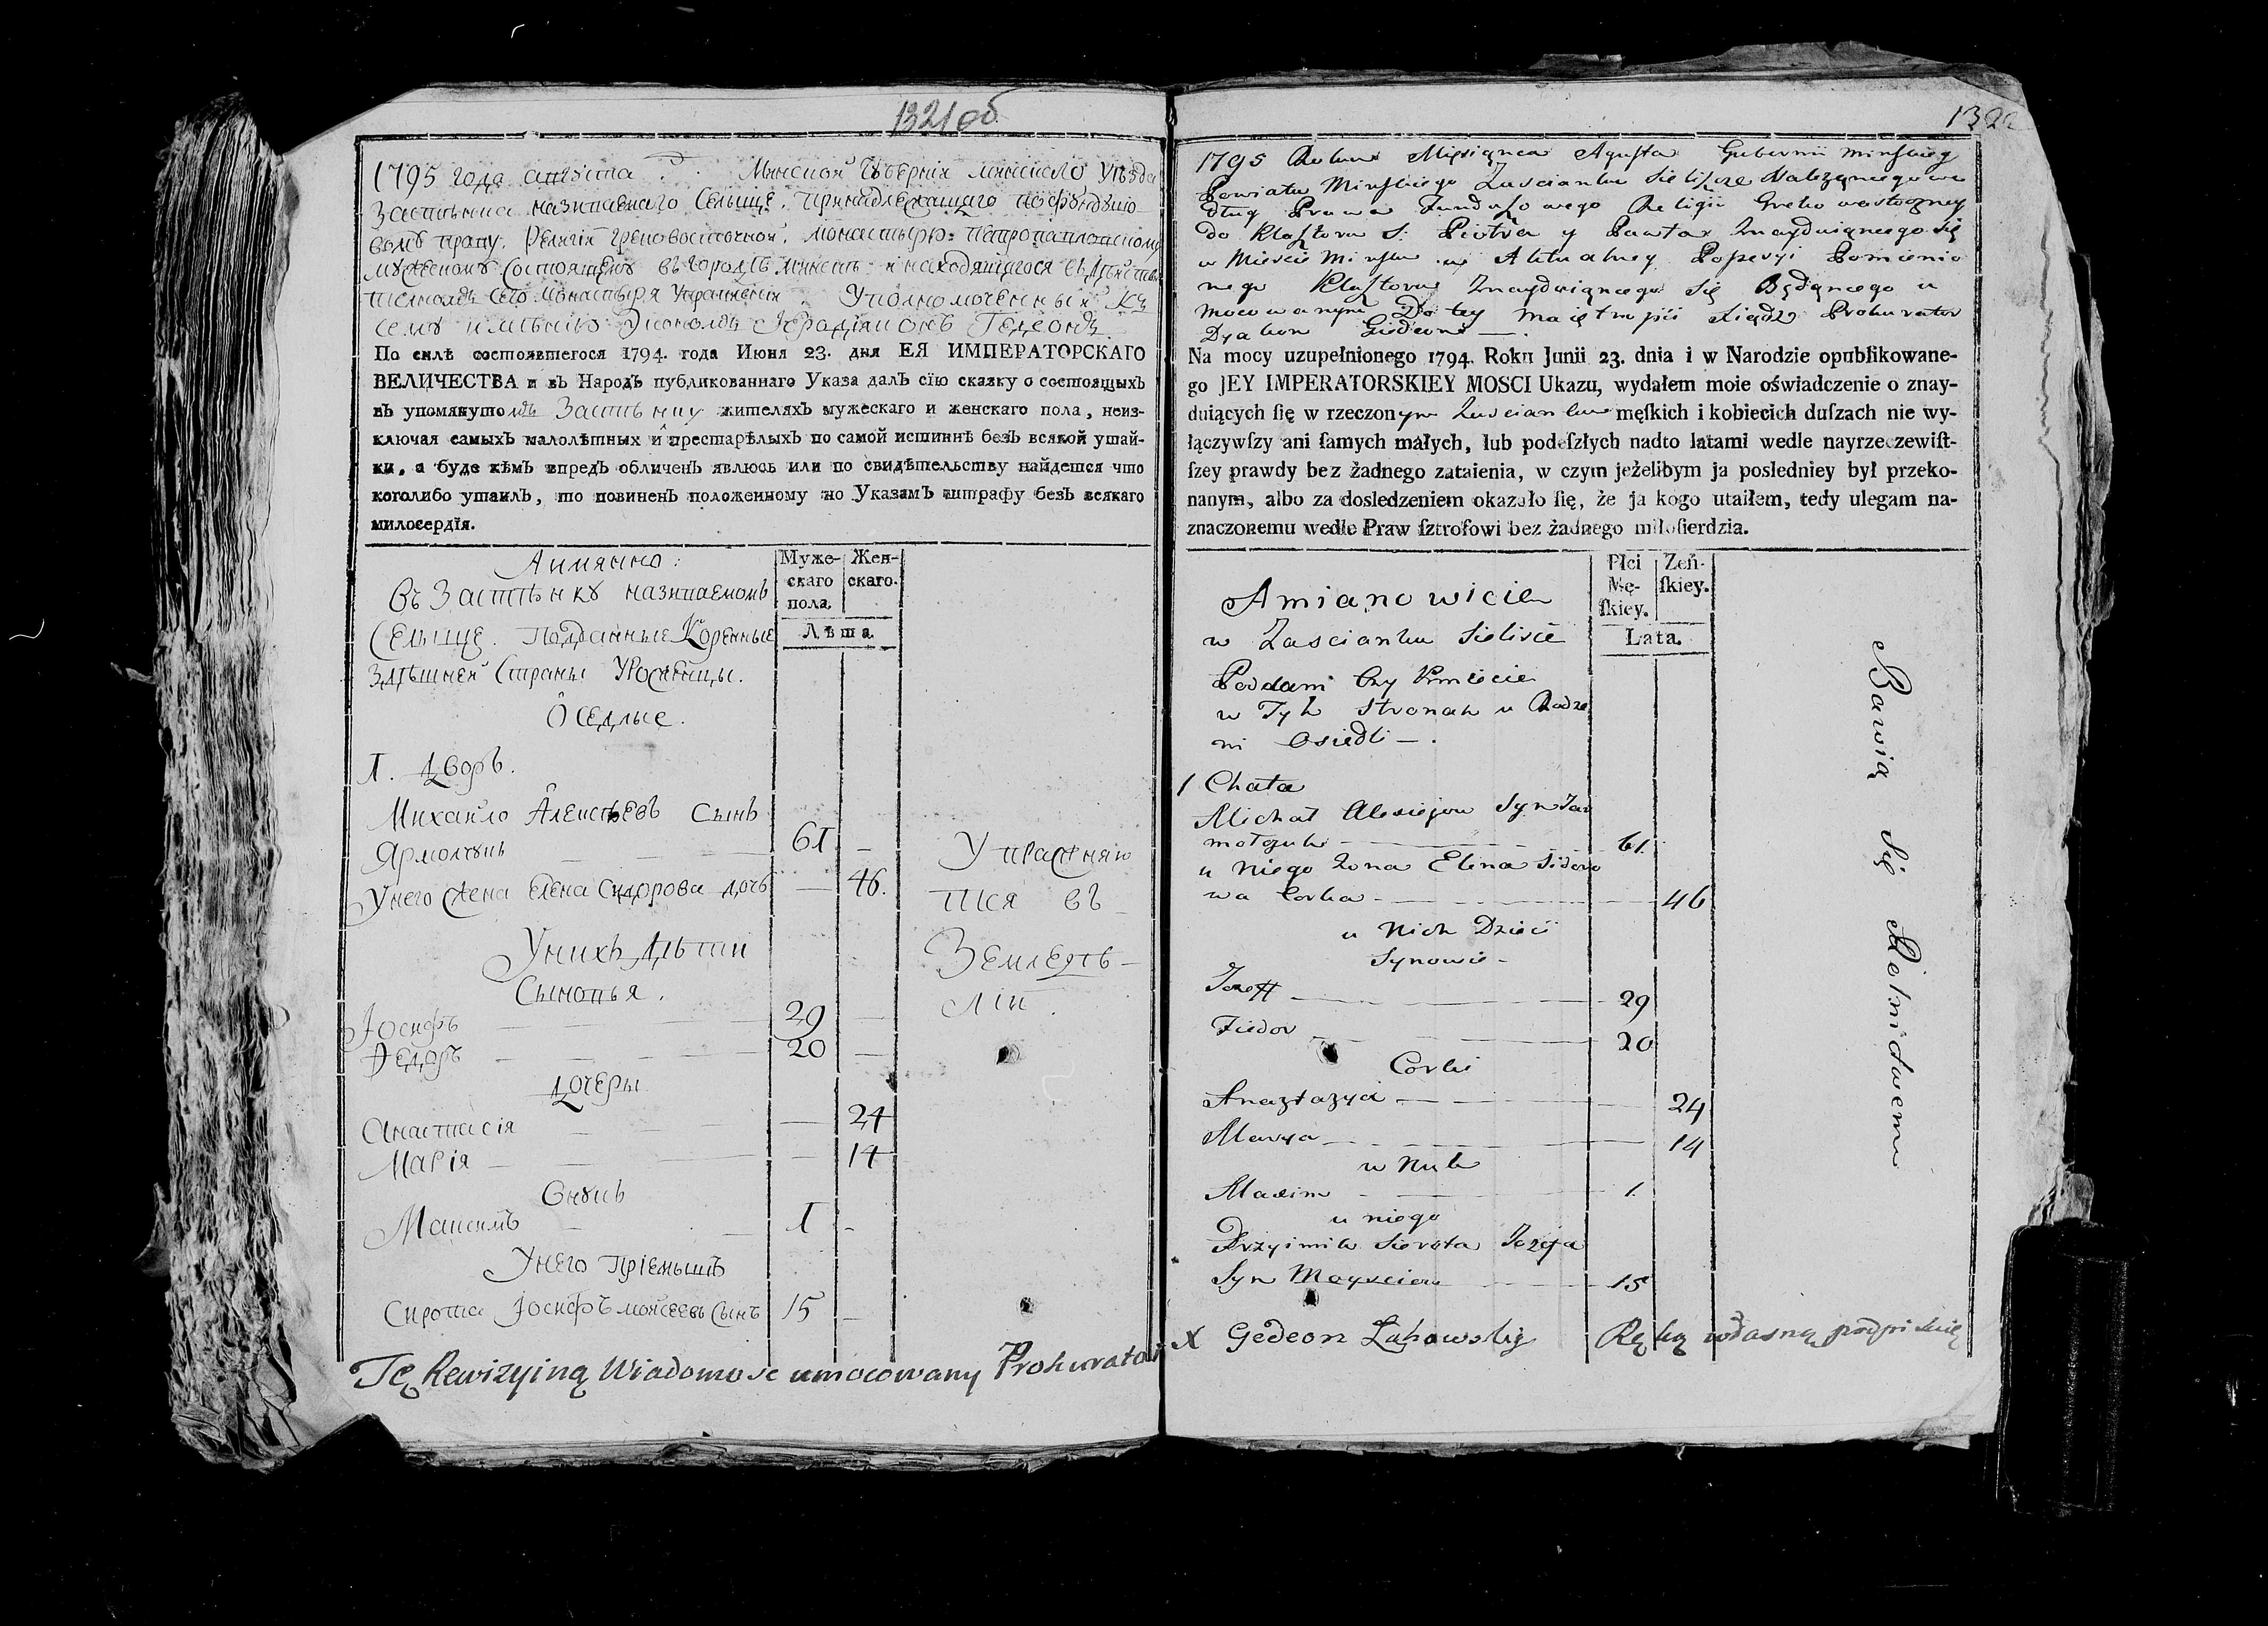 1321 об
1795 года августа Минской Губерніи минскаго Уезда
Застенка називаемаго Сельище. принадлежащаго по фундушо-
вому праву. Религіи Грековосточной. монастырю Петропавловскому
мужескому состоящему въ городѣ минскѣ и находящагося въ
сего монастыря Управленіи. Уполномоченный Къ
сему имѣнію Экономъ Іеродіяконъ Гедеонъ
По силѣ состоявшегося 1794. года Июня 23. дня ЕЯ ИМПЕРАТОРСКАГО
ВЕЛИЧЕСТВА и въ Народъ публикованнаго Указа далъ сію сказку о состоящыхъ
въ упомянутомъ Застѣнку жителяхъ мужескаго и женскаго пола, неиз-
ключая самыхъ малолѣтныхъ и престарѣлыхъ по самой истиннѣ безъ всякой утай-
ки, а буде кѣмъ впредъ обличенъ явлюсь или по свидѣтельству найдется что
коголибо утаилъ, то повиненъ положенному по Указамъ штрафу безъ всякаго
милосердія.
Аимянно:
Муже-
скаго
пола.
Жен-
скаго.
Лѣта
въ Застѣнку називаемомъ
Сельище. Подданные Коренные
здѣшней Страны Уроженцы.
Оседлые.
1. дворъ.
Михайло Алексѣевъ Сынъ
Ярмолчукъ 61 —
У него жена Елена Сидорова дочь — 46.
У нихъ дѣти
Сыновья.
Іосифъ 29 —
Федоръ 20 —
дочеры
Анастасія — 24
Марія — 14
Внукъ
Максимъ 1 -
У него пріемышъ
Сирота Іосифъ Мойсеевъ Сынъ 15 —
Упражняю
тся въ
Земледѣ-
ліи.
1322
1795 Roku Miesiąnca Agusta Gubernii Minskiey
Powiatu Minskiego Zascianku Sielisze Nalezącego we
dług Prawa Funduszowego Religii Greko wostoczney
do Klasztoru S: Piotra y Pawła Znayduiącego się
w Miescie Minsku w Aktualney Posesyi Pomienio
nego Klasztoru Znayduiącego się Będącego u
mocowanym Do tey maiętnosci xiądz Prokurator
Dyakon Giedeon —
Na mocy uzupełnionego 1794. Roku Junii 23. dnia i w Narodzie opublikowane-
go JEY IMPERATORSKIEY MOSCI Ukazu, wydałem moie oświadczenie o znay-
duiących ſię w rzeczonym Zascianku męſkich i kobiecich duſzach nie wy-
łączywſzy ani ſamych małych, lub podeſzłych nadto latami wedle nayrzeczewiſt-
ſzey prawdy bez żadnego zataienia, w czym jeżelibym ja posledniey był przeko-
nanym, albo za dosledzeniem okazało ſię, że ja kogo utaiłem, tedy ulegam na-
znaczonemu wedle Praw ſztrofowi bez żadnego miłoſierdzia.
Amianowicie
Płci
Mę-
ſkiey.
Zeń-
ſkiey.
Lata.
w Zascianku Sielisce
Poddani Kmiecie
w Tyh stronah u Rodze
ni Osiedli —.
1 Chata
Michał Alexiejow Syn Jar
mołczuk 61.
u Niego Zona Elena Sidoro
wa Corka 46
u Nich Dzieci
Synowie -
Jozeff 29
Fiedor 20
Corki
Anaztazyia 24
Marya 14
w Nuk
Maxim 1.
u niego
Przyimik Sierota Jozefa
Syn Moysciow 15
Bawią się Rolnictwem
Tę Rewizyiną Wiadomosc umocowany Prokurator X Gedeon Zahowskiy Ręką własną podpisuię